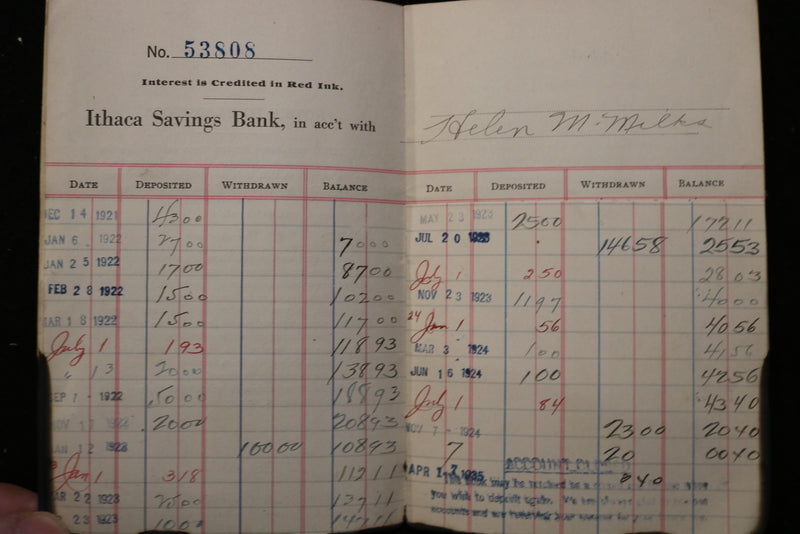 No. 53808
Interest is Credited in Red Ink.
Ithaca Savings Bank, in acc't with
DATE DEPOSITED WITHDRAWN BALANCE
DEC 14 1921 4300
JAN 6 1922 2700 7000
JAN 25 1922 1700 8700
FEB 28 1922 1500 10200
MAR 18 1922 1500 11700
July 1 193 11893
" 13 2000 13893
SEP 1 - 1922 5000 18893
NOV 17 1922 2000 20893
JAN 12 1923 10000 10893
Jan 1 318 11211
MAR 22 1923 2500 13711
23 1923 1000 14711
Helen M. Milks
DATE DEPOSITED WITHDRAWN BALANCE
MAY 23 1923 2500 17211
JUL 20 1923 14658 2553
July 1 250 2803
NOV 23 1923 1197 4000
24 Jan 1 56 4056
MAR 3 1924 100 4156
JUN 16 1924 100 4256
July 1 84 4340
NOV 7 - 1924 2300 2040
7 20 0040
APR 17 1935 ACCOUNT 840
you wish to deposit again.
accounts and are